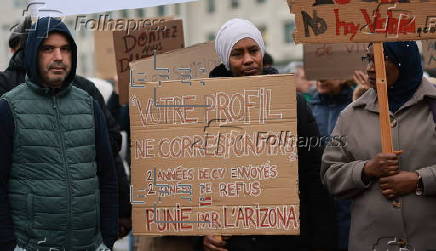 FolhaPress
NO MY
DONNE
VOTRE PROFIL
NE CORRESPOND PAS
2 ANNÉES DE CV ENVOYÉS
2 ANNÉES DE REFUS
PUNIE PAR L'ARIZONA
FolhaPress